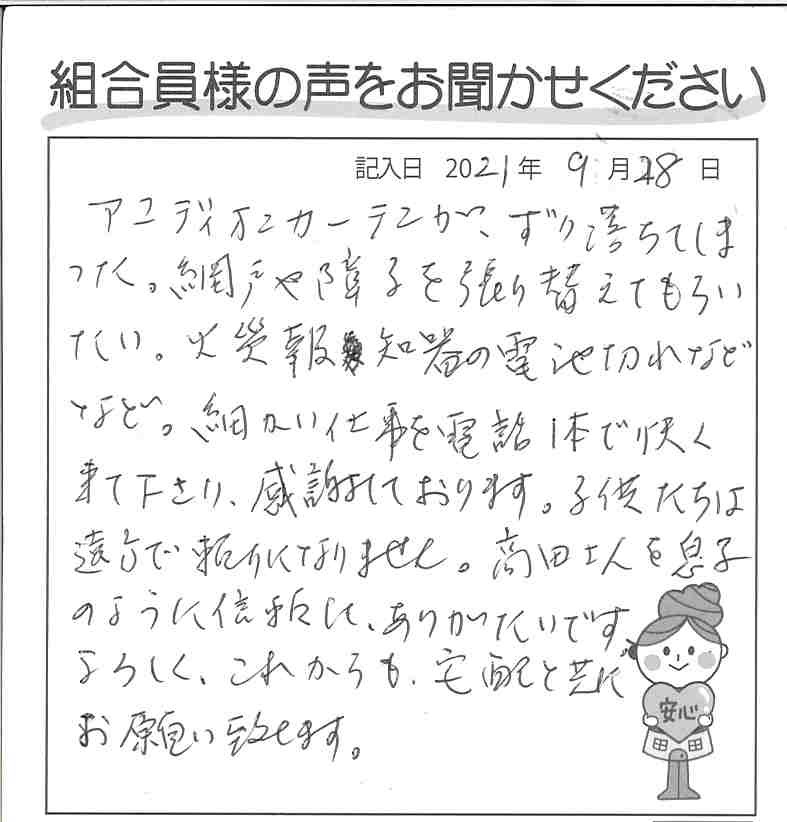 組合員様の声をお聞かせください
記入日 2021年 9月28日
アコーディオンカーテンが、ずり落ちてしま
った。網戸や障子を張り替えてもらい
たい。火災報知器の電池切れなど
など。細かい仕事を電話1本で快く
来て下さり、感謝しております。子供たちは
遠方で頼りになりません。高田さんを息子
のように信頼し、ありがたいです。
よろしく、これからも、宅配と共に
お願い致します。
安心